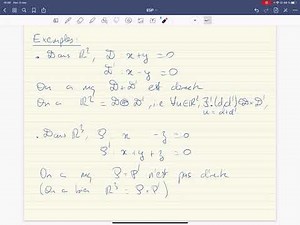 Exemples:
• Dans ℝ², D: x+y=0
D': x-y=0
On a mq D+D' est directe
On a ℝ² = D⊕D', i.e ∀u∈ℝ², ∃!(d,d')∈D×D',
u=d+d'
• Dans ℝ³, P: x - z = 0
P': x+y+z=0
On a mq P+P' n'est pas directe
(On a bien ℝ³ = P+P')